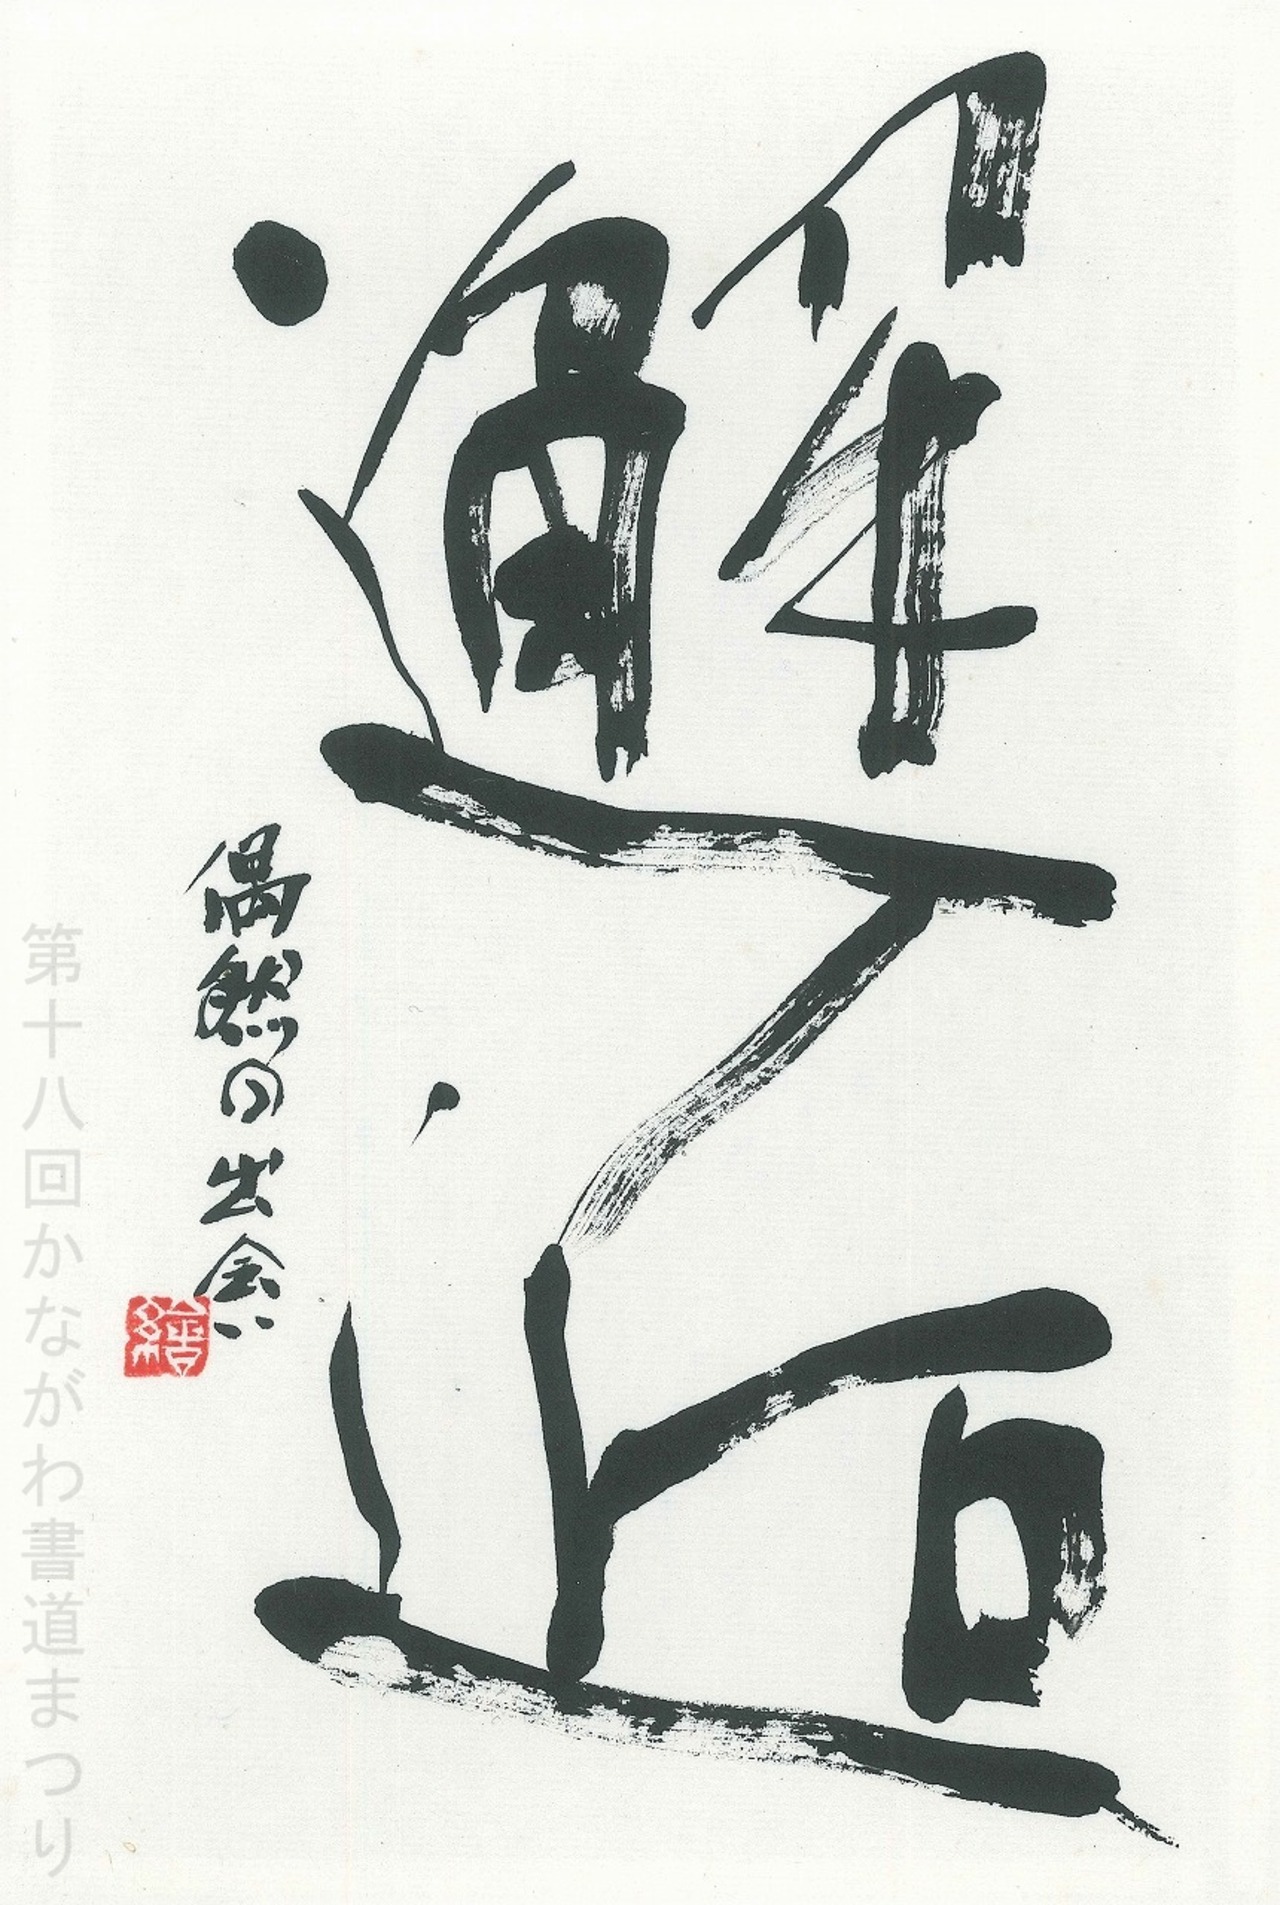 邂逅
偶然の出会い
繪
第十八回かながわ書道まつり